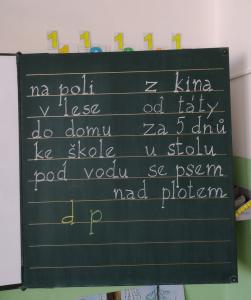 na poli z kina
v lese od táty
do domu za 5 dnů
ke škole u stolu
pod vodu se psem
nad plotem
d p